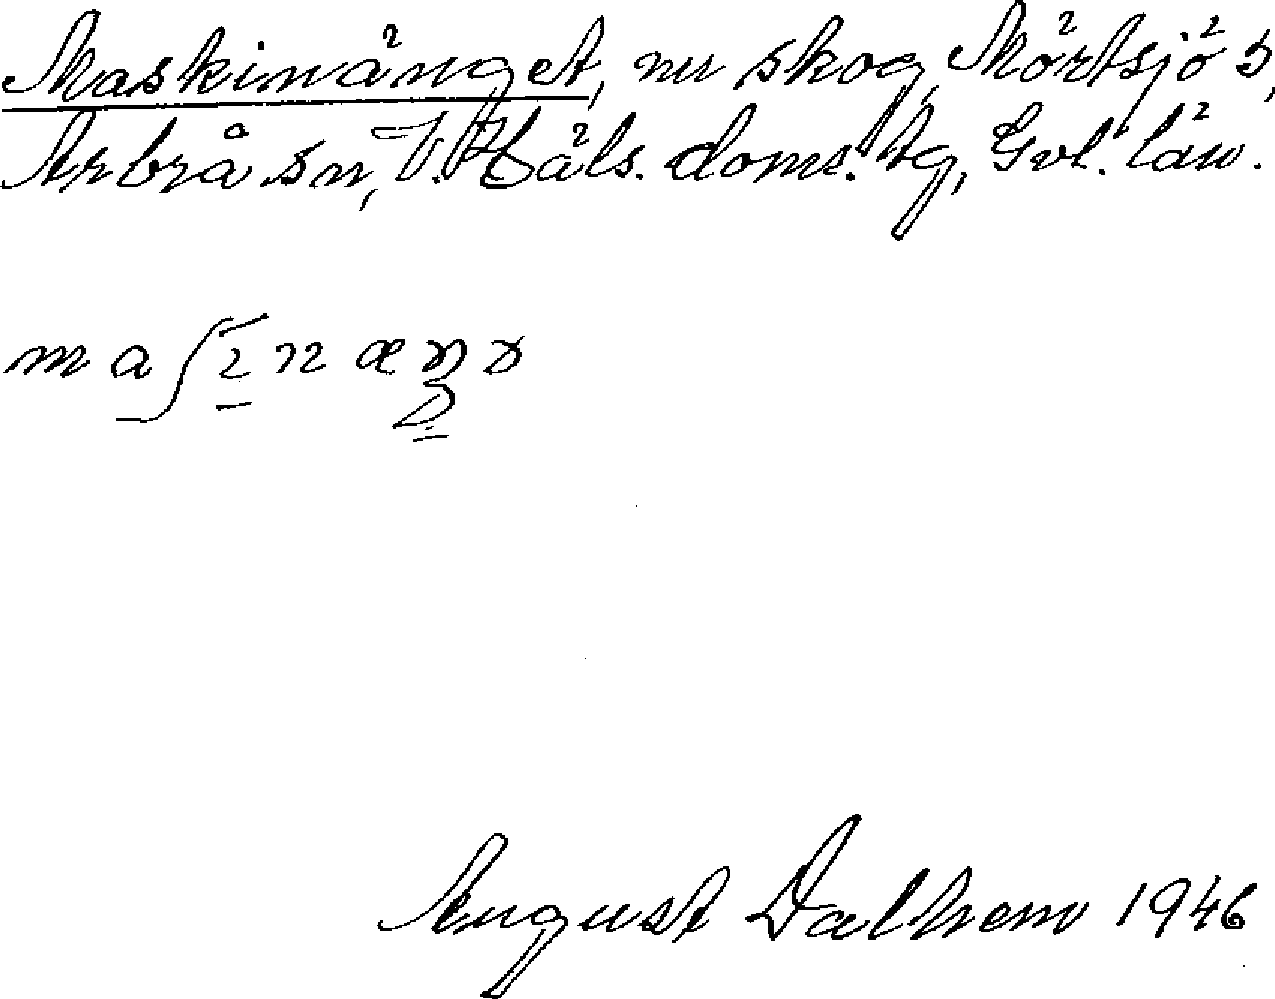 Maskinänget, nu skog, Mörtsjö 3,
Arbrå sn, V. Häls. doms. tg, Gvl. län.
August Dalhem 1946